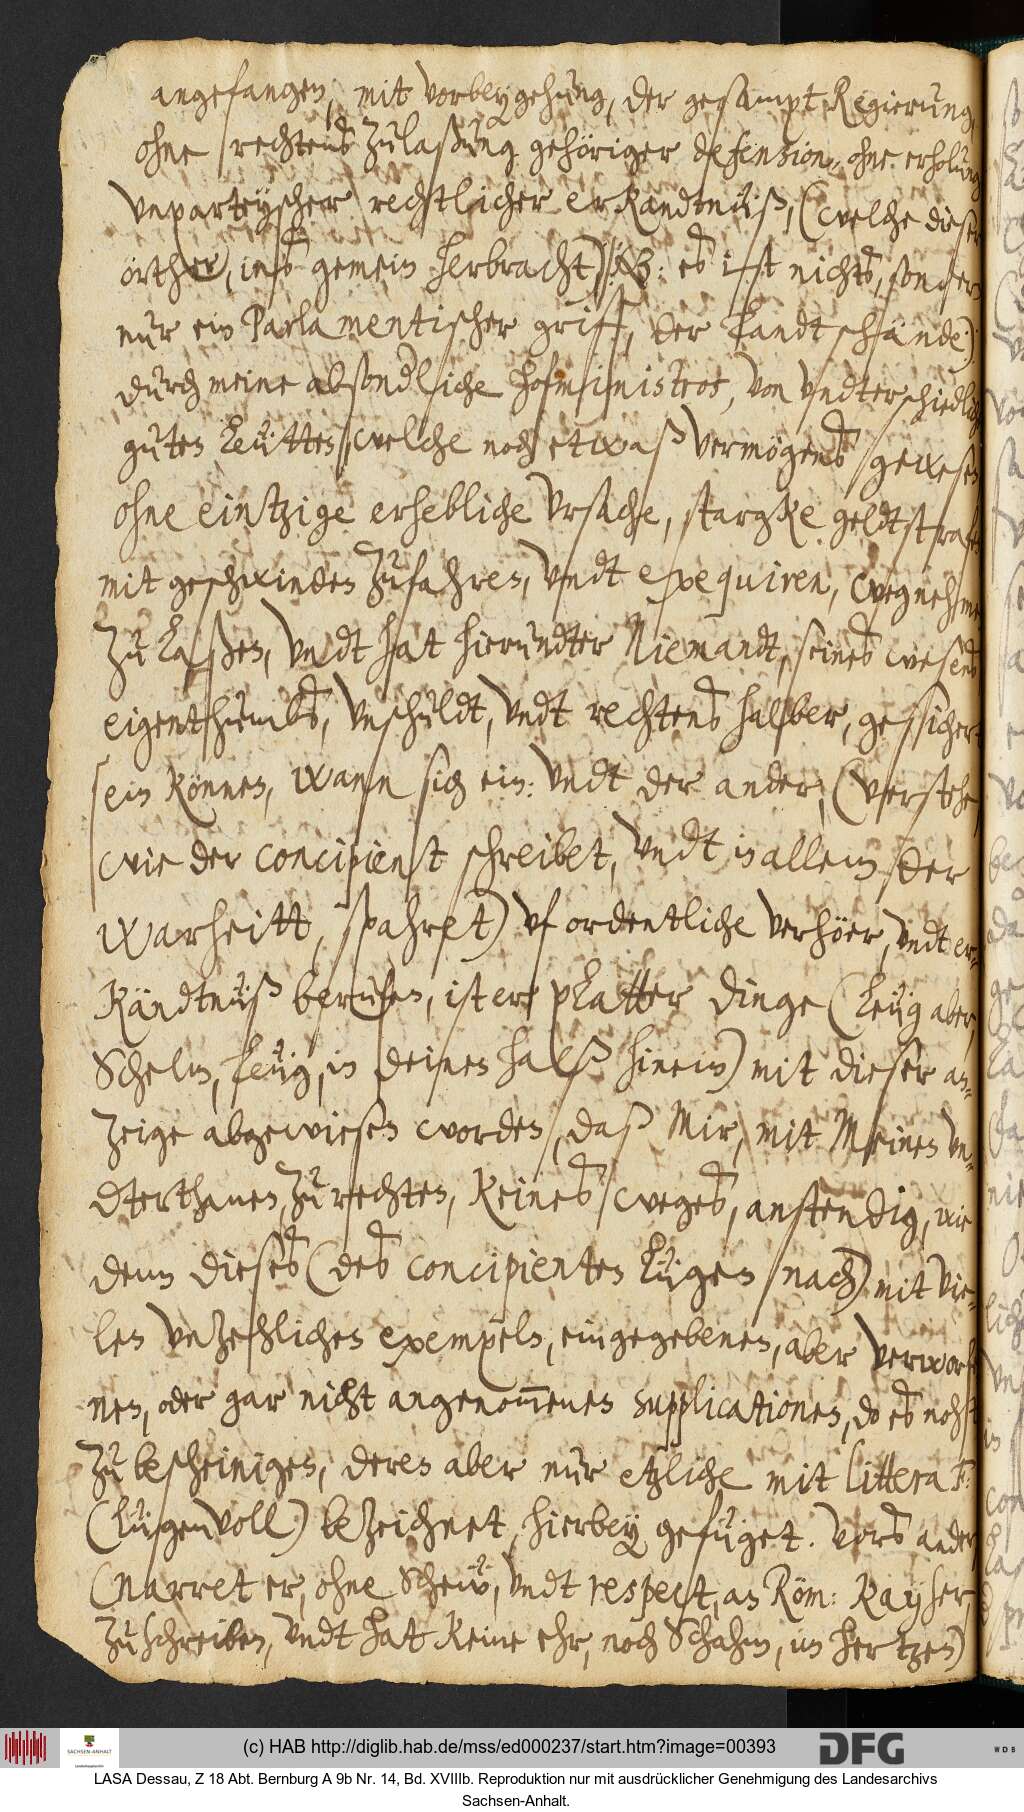 angefangen, mit vorbeygehung, der gesampt Regierung,
ohne rechtens Zulaßung gehöriger defension, ohne erholung
vnparteyscher rechtlicher erkandtnüß, (welche dieser
orther, inß gemein herbracht) NB: eß ist nichts, sondern
nur ein Parlamentischer griff, der Landt schande)
durch meine absondliche hofministros, von vndterschiedlich
guten Leuttes welche noch etwaß vermögens gewesen
ohne eintzige erhebliche vrsache, stargke geldtstrafen
mit geschwinden Zufahren, vndt exequiren, wegnehmen
Zu Laßen, vndt hat hierundter Niemandt, seines wesens
eigenthumbs, vnschuldt, vndt rechtens halber, gesicher
sein können, wann sich ein: vndt der ander, (verstehe
wie der concipient schreibet, vndt in allem der
warheitt, spahret) vf ordentliche verhöer, vndt er-
kändtnüß beruffen, ist er platter dinge (leug aber,
Schelm, leug, in deinen halß hinein) mit dieser an-
Zeige abgewiesen worden, daß Mir, mit Meinen vn-
dterthanen, Zu rechten, keines weges, anstendig, wie
denn dieses (des concipienten Lügen nach) mit vie-
len vnzehlichen exempeln, eingegebenen, aber verworf
nen, oder gar nicht angenom̄enen supplicationen, do es nohst
Zu bescheinigen, deren aber nur etzliche mit littera F:
(Lügenvoll) beZeichnet, hierbey gefüget. vors ander
(Narret er, ohne Scheü, vndt respect, an Röm: Kayser,
Zu schreiben, vndt hat keine ehr, noch Schahm, im hertzen)
(c) HAB http://diglib.hab.de/mss/ed000237/start.htm?image=00393
SACHSEN-ANHALT
DFG
WDB
LASA Dessau, Z 18 Abt. Bernburg A 9b Nr. 14, Bd. XVIIIb. Reproduktion nur mit ausdrücklicher Genehmigung des Landesarchivs
Sachsen-Anhalt.